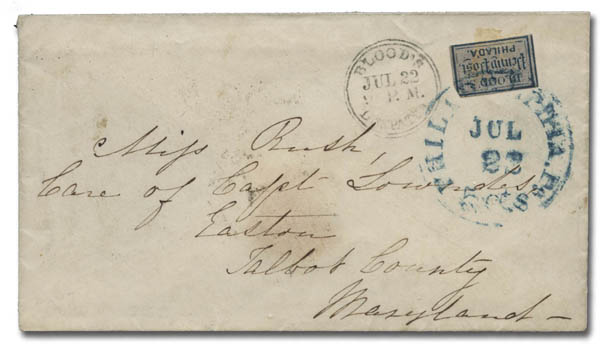 BLOOD'S
JUL 22
P. M.
DESPATCH
BLOOD'S
Penny Post
PHILADA.
PHILADELPHIA, Pa.
JUL
5 cts
Miss Rush,
Care of Capt Lowndes,
Easton
Talbot County
Maryland